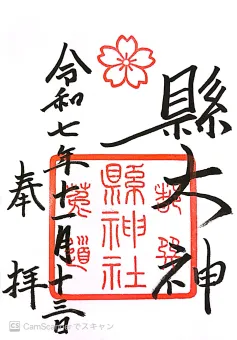 縣大神
奉拝
令和七年十一月十三日
縣神社
菟道
CamScannerでスキャン